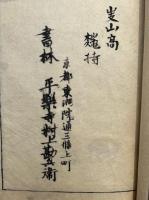 叟山高
幾持
京都東洞院通三條上町
書林 平樂寺村上勘兵衛